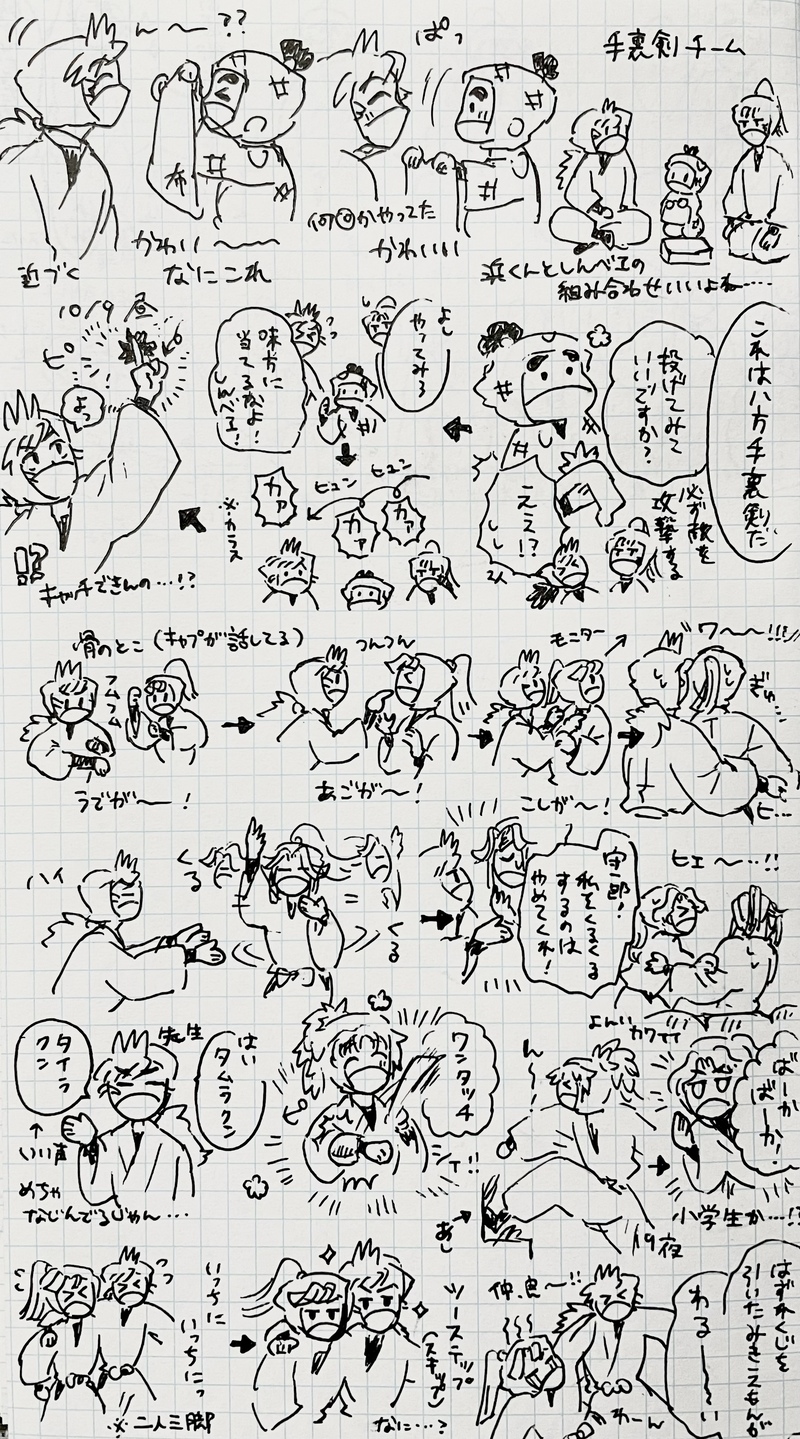 手裏剣チーム
浜くんとしんベヱの
組み合わせいいよね……
ぱっ
何かやってた
かわいい
ん〜〜??
布
かわい〜〜〜
なにこれ
近づく
これは八方手裏剣だ
投げてみて
いいですか?
必ず敵を
攻撃する
ええ!?
しし
2人
よし
やってみろ
味方に
当てるなよ!
しんベヱ!
ヒュン ヒュン
カァ
カァ
カァ
※カラス
10/9 昼
ピ
よっ
!?
キャッチできんの…!?
骨のとこ(キャプが話してる)
フムフム
うでが〜!
つんつん
あごが〜!
モニター
こしが〜!
ワ〜〜!!!
ぎゅ…
ヒ…
ヒェ〜…!!
守一郎!
私をくるくる
するのは
やめてくれ!
くる
くる
ハイ
よんいカワイイ
ばーか
ばーか!
小学生か…!?
ん〜!
あし
19夜
ワンタッチ
ピ
シィ!!
はい
タムラクン
先生
タイラ
クン
いい声
めちゃ
なじんでるじゃん…
はずれくじを
引いたみきえもんが
わる〜〜い
仲良〜!!
わーん
ツーステップ
(スキップ)
なに…?
いっちに
いっちにっ
※二人三脚